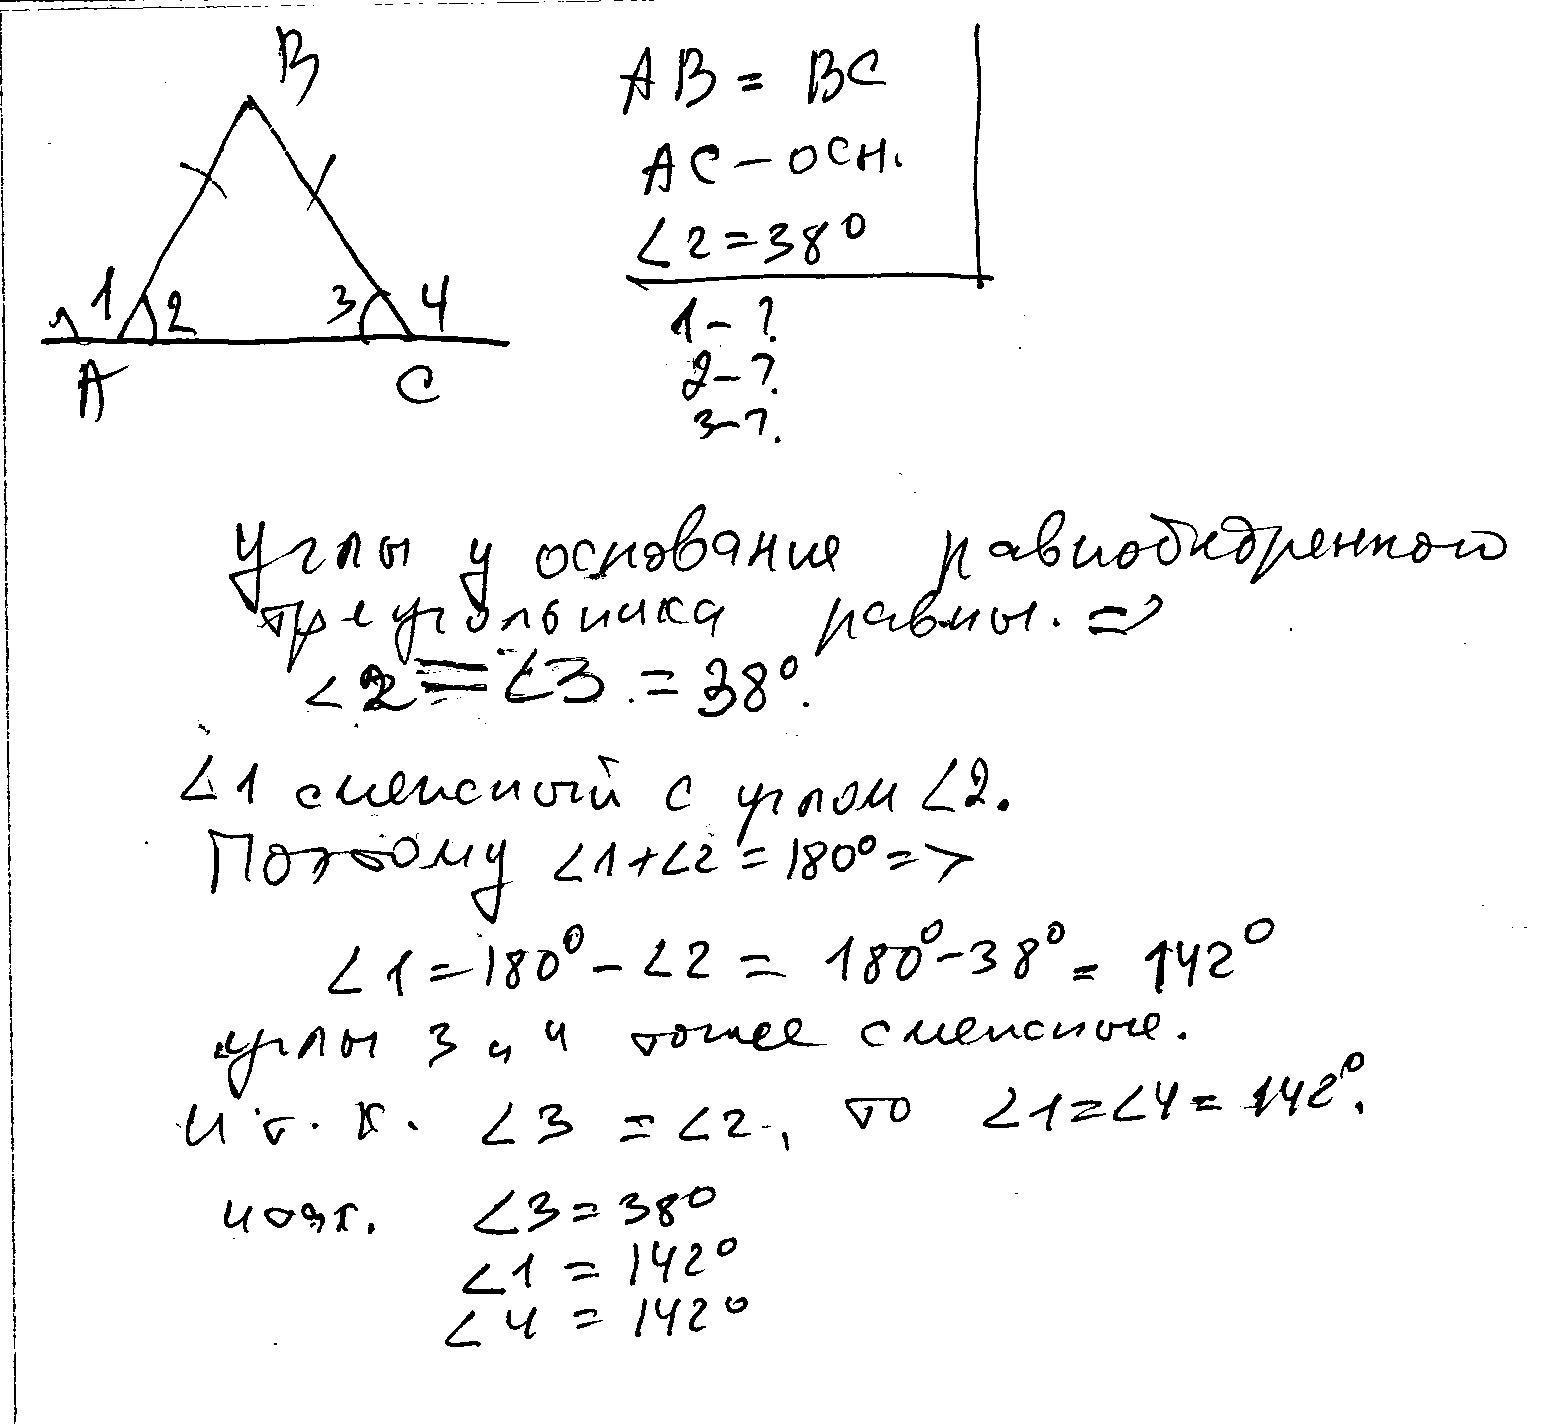 B
AB = BC
AC – осн.
∠2=38°
1 2 3 4
A C
1-?
2-?
3-?
Углы у основание равнобедренного
треугольника равны. =>
∠2 = ∠3 = 38°.
∠1 смежный с углом ∠2.
Поэтому ∠1+∠2 = 180° =>
∠1 = 180° - ∠2 = 180° - 38° = 142°
углы 3 и 4 тоже смежные.
и т. к. ∠3 = ∠2, то ∠1=∠4= 142°.
∠3 = 38°
∠1 = 142°
∠4 = 142°